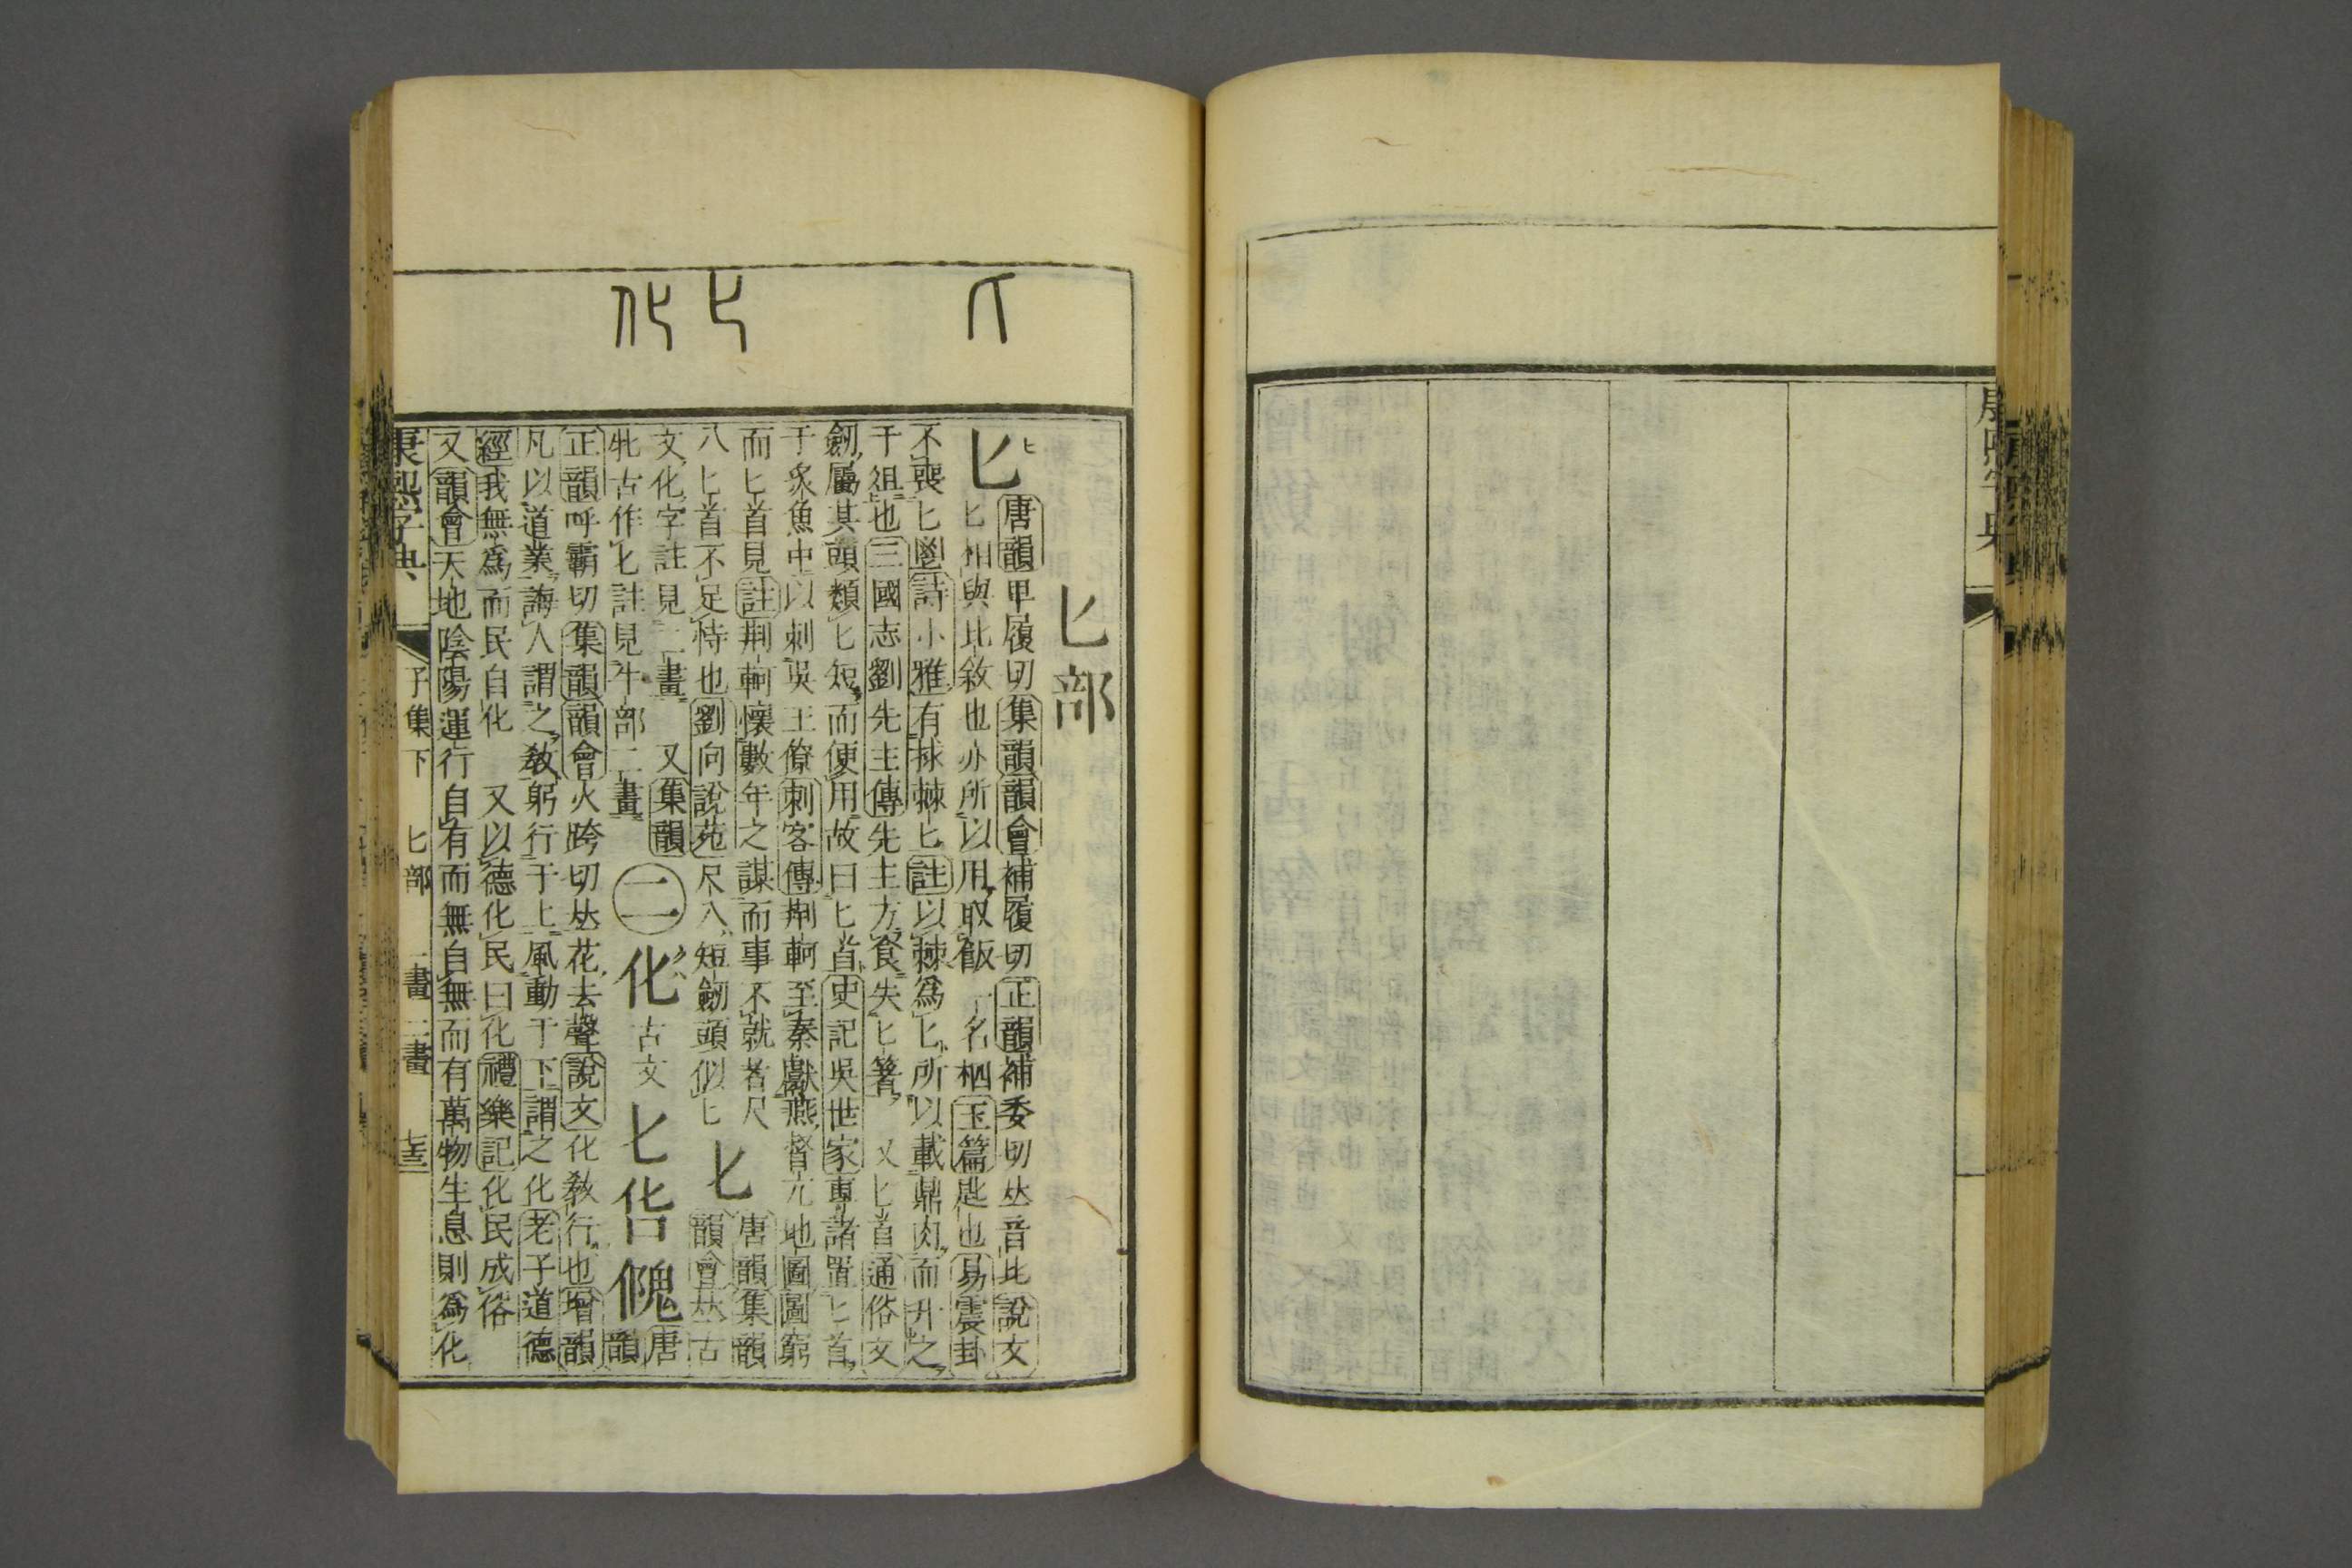 匕部
匕 ヒ
唐韻卑履切集韻韻會補履切正韻補委切𠀤音比說文
匕相與比敘也亦所以用取飯一名柶玉篇匙也易震卦
不喪匕鬯詩小雅有捄棘匕註以棘爲匕所以載鼎肉而升之
于俎也三國志劉先主傳先主方食失匕箸 又匕首通俗文
劒屬其頭類匕短而便用故曰匕首史記吳世家專諸置匕首
于炙魚中以刺吳王僚刺客傳荆軻至秦獻燕督亢地圖圖窮
而匕首見註荆軻懷數年之謀而事不就者尺
八匕首不足恃也劉向說苑尺八短劒頭似匕
𠤎
唐韻集韻
韻會𠀤古
文化字註見二畫 又集韻
牝古作匕註見牛部二畫
㊁
化 クハ
古文
𠤎 𠏁 傀
唐
韻
正韻呼霸切集韻韻會火跨切𠀤花去聲說文化敎行也增韻
凡以道業誨人謂之敎躬行于上風動于下謂之化老子道德
經我無爲而民自化 又以德化民曰化禮樂記化民成俗
又韻會天地陰陽運行自有而無自無而有萬物生息則爲化
康熙字典 子集下 匕部 一畫 二畫